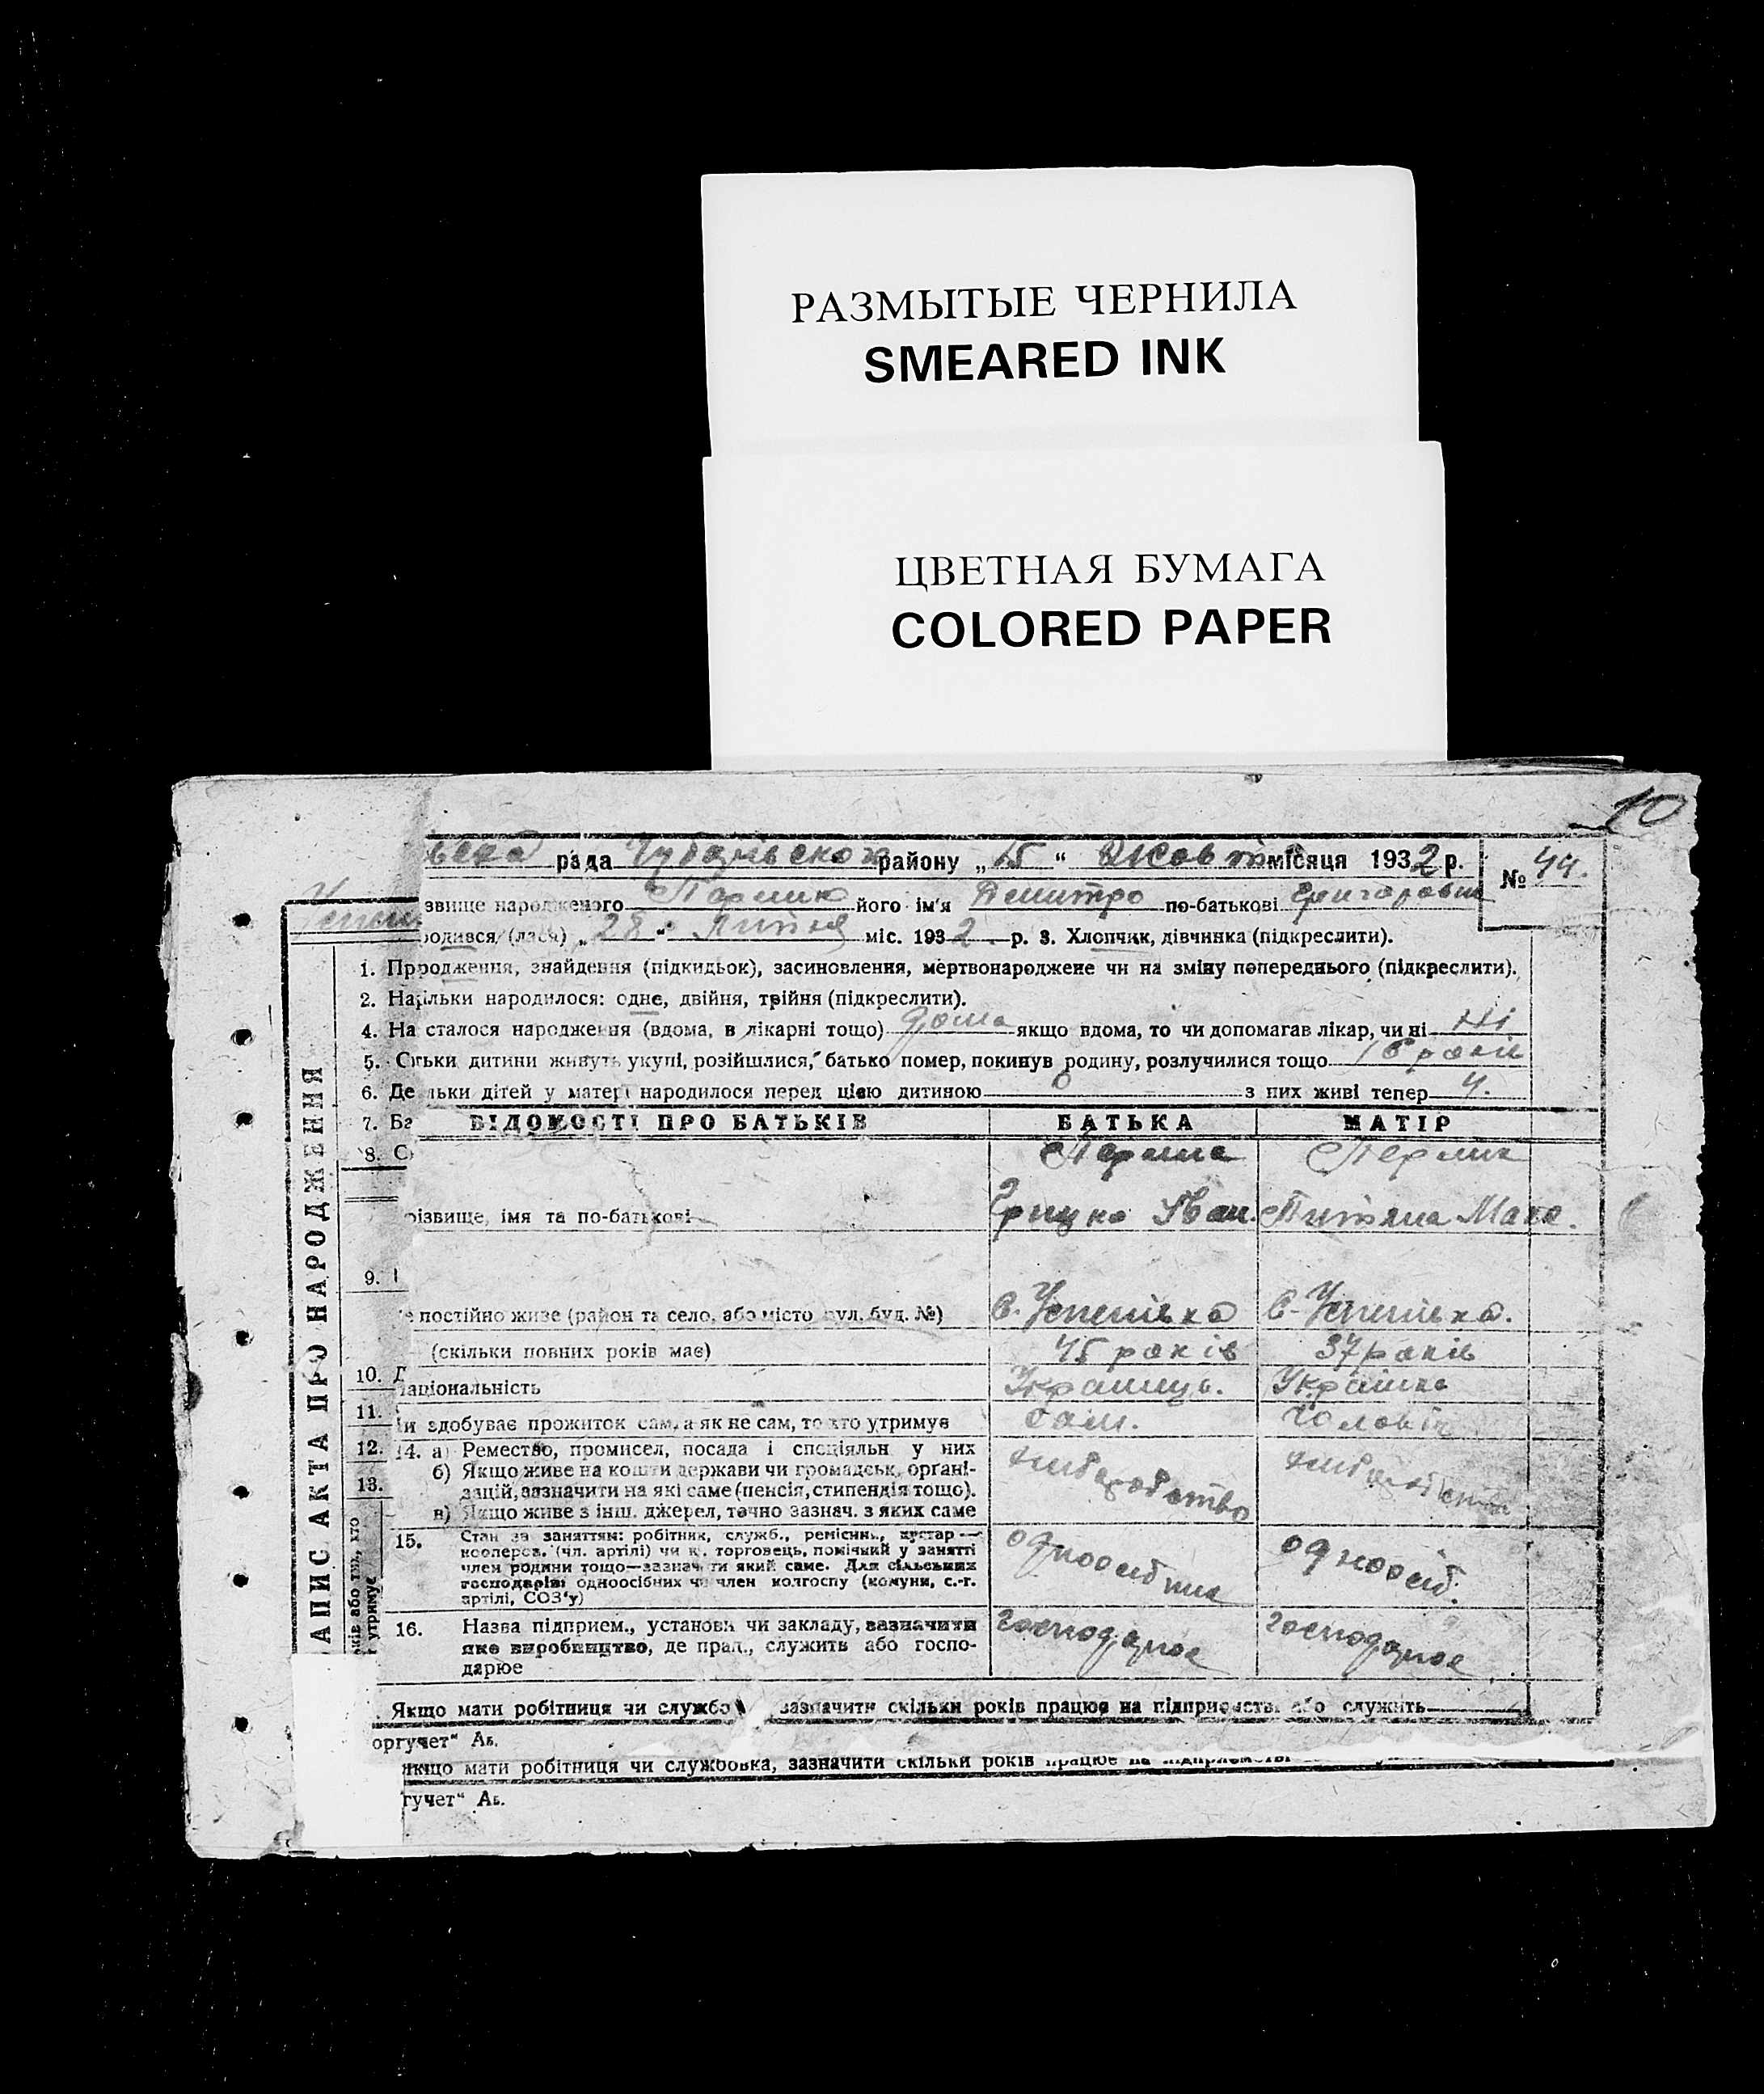 РАЗМЫТЫЕ ЧЕРНИЛА
SMEARED INK
ЦВЕТНАЯ БУМАГА
COLORED PAPER
10
рада району „15“ Жовтня місяця 1932 р.
№ 44.
звище народженого його ім'я Дмитро по-батькові
родився (лася) „28“ Липня міс. 1932 р. 3. Хлопчик, дівчинка (підкреслити).
1. Пр родження, знайдення (підкидьок), засиновлення, мертвонароджене чи на зміну попереднього (підкреслити).
2. На ільки народилося: одне, двійня, трійня (підкреслити).
4. На сталося народження (вдома, в лікарні тощо) дома якщо вдома, то чи допомагав лікар, чи ні Ні
5. С тьки дитини живуть укупі, розійшлися, батько помер, покинув родину, розлучилися тощо років
6. Де льки дітей у матері народилося перед цією дитиною з них живі тепер 4.
7. Ба ВІДОМОСТІ ПРО БАТЬКІВ БАТЬКА МАТІР
8. С
різвище, імя та по-батькові Грицко Іван. Макс.
9.
е постійно живе (район та село, або місто вул. буд. №) с. Успенівка с. Успенівка.
(скільки повних років має) 45 років 37 років
10. Д
аціональність Українць. Українка
11.
и здобуває прожиток сам, а як не сам, то хто утримує сам. чоловік
12. 14. а) Ремество, промисел, посада і спеціяльн у них хліборобство
б) Якщо живе на кошти держави чи громадськ. органі-
13. зацій, зазначити на які саме (пенсія, стипендія тощо).
в) Якщо живе з інш. джерел, точно зазнач. з яких саме
15. Стан за заняттям: робітник, служб., ремісник, кустар— одноосібник одноосіб.
кооперов. (чл. артілі) чи н. торговець, помічний у занятті
член родини тощо—зазначити який саме. Для сільських
господарів: одноосібних чи член колгоспу (комуни, с.-г.
артілі, СОЗ'у)
16. Назва підприєм., установи чи закладу, зазначити господарює господарює
яке виробництво, де прац., служить або госпо-
дарює
АПИС АКТА ПРО НАРОДЖЕННЯ
ків або тих, хто
утримує
. Якщо мати робітниця чи службо зазначити скільки років працює на підприємстві або служить
оргучет“ Ав.
якщо мати робітниця чи службовка, зазначити скільки років працює на підприємстві
гучет“ Ав.